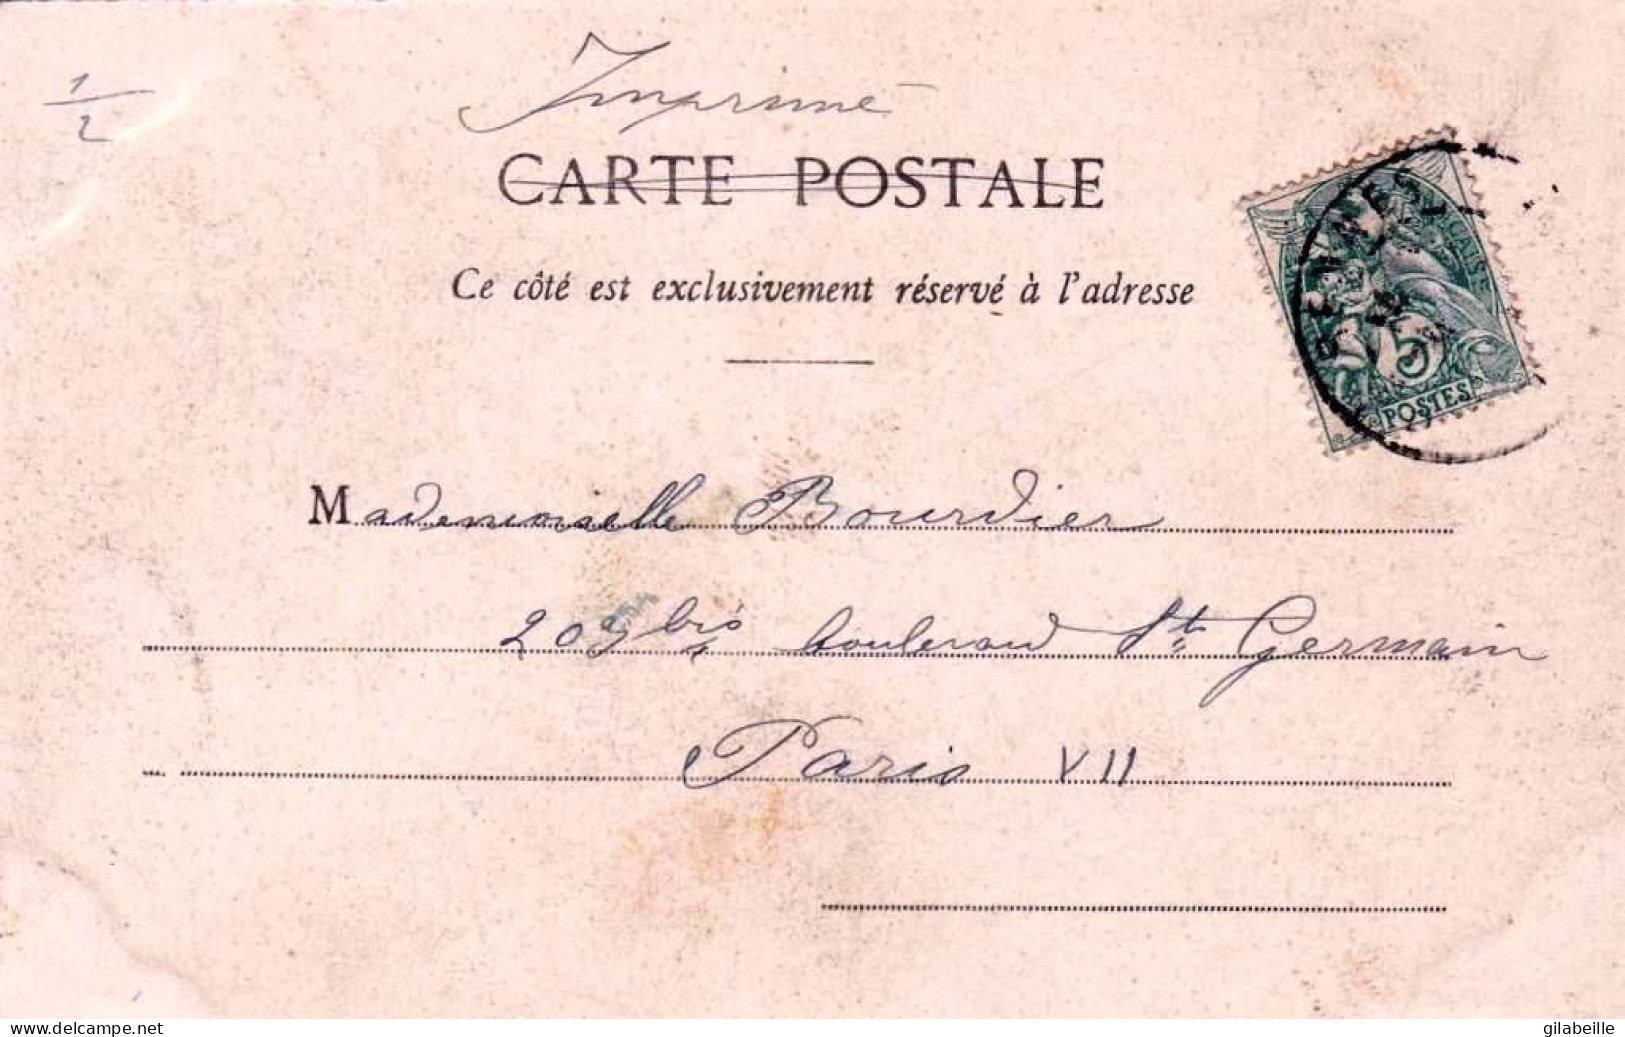 1/2
Imprimé
CARTE POSTALE
Ce côté est exclusivement réservé à l'adresse
RENNES
5
POSTES
Mademoiselle Bourdier
203 bis boulevard St Germain
Paris VII
www.delcampe.net
gilabeille